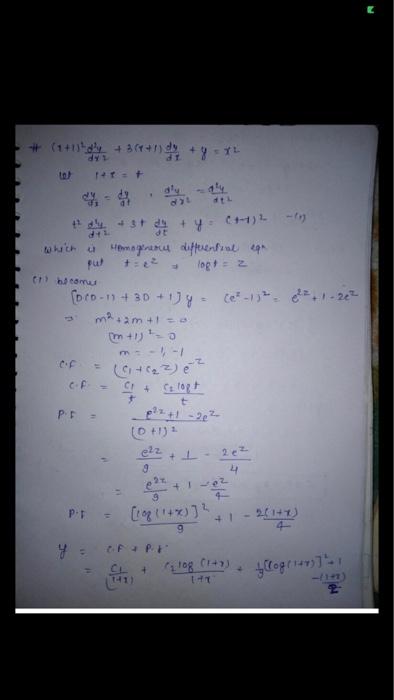 # (x+1)² d²y/dx² + 3(x+1) dy/dx + y = x²
let 1+x = t
dy/dx = dy/dt , d²y/dx² = d²y/dt²
t² d²y/dt² + 3t dy/dt + y = (t-1)² -(1)
which is Homogenous differential eqn
put t = e^z ⇒ log t = z
(1) becomes
[D(D-1) + 3D + 1] y = (e^z - 1)² = e^2z + 1 - 2e^z
⇒ m² + 2m + 1 = 0
(m+1)² = 0
m = -1, -1
C.F. = (C₁ + C₂ z) e^-z
C.F. = C₁/t + C₂ log t/t
P.I = e^2z + 1 - 2e^z/(D+1)²
= e^2z/9 + 1 - 2e^z/4
= e^2z/9 + 1 - e^z/4
P.I = [log(1+x)]²/9 + 1 - 2(1+x)/4
y = C.F + P.I
= C₁/(1+x) + C₂ log(1+x)/1+x + 1/9 [log(1+x)]² + 1
-(1+x)/2